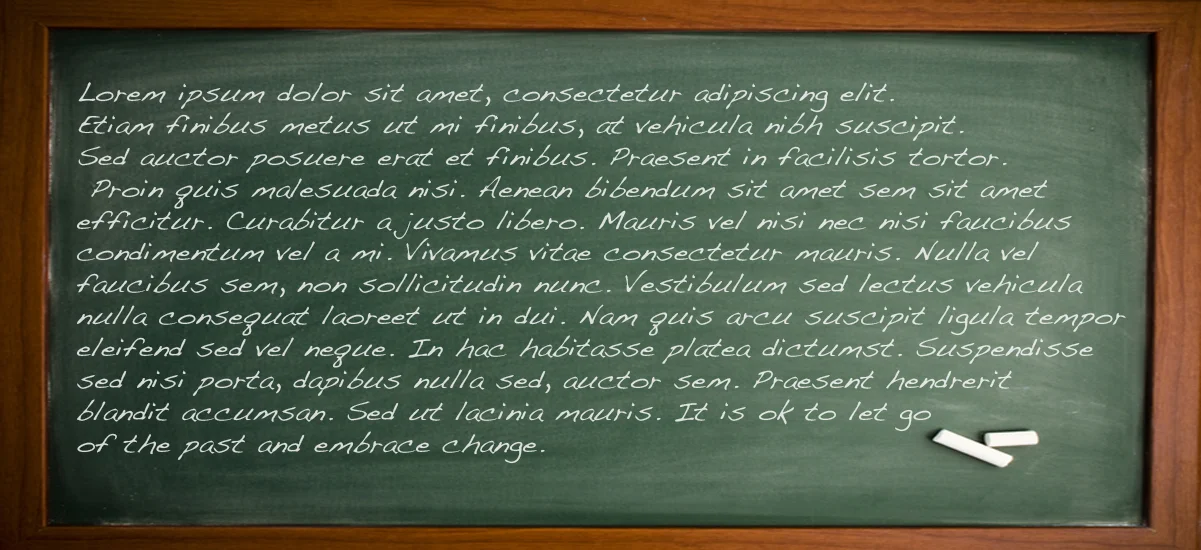 Lorem ipsum dolor sit amet, consectetur adipiscing elit.
Etiam finibus metus ut mi finibus, at vehicula nibh suscipit.
Sed auctor posuere erat et finibus. Praesent in facilisis tortor.
Proin quis malesuada nisi. Aenean bibendum sit amet sem sit amet
efficitur. Curabitur a justo libero. Mauris vel nisi nec nisi faucibus
condimentum vel a mi. Vivamus vitae consectetur mauris. Nulla vel
faucibus sem, non sollicitudin nunc. Vestibulum sed lectus vehicula
nulla consequat laoreet ut in dui. Nam quis arcu suscipit ligula tempor
eleifend sed vel neque. In hac habitasse platea dictumst. Suspendisse
sed nisi porta, dapibus nulla sed, auctor sem. Praesent hendrerit
blandit accumsan. Sed ut lacinia mauris. It is ok to let go
of the past and embrace change.